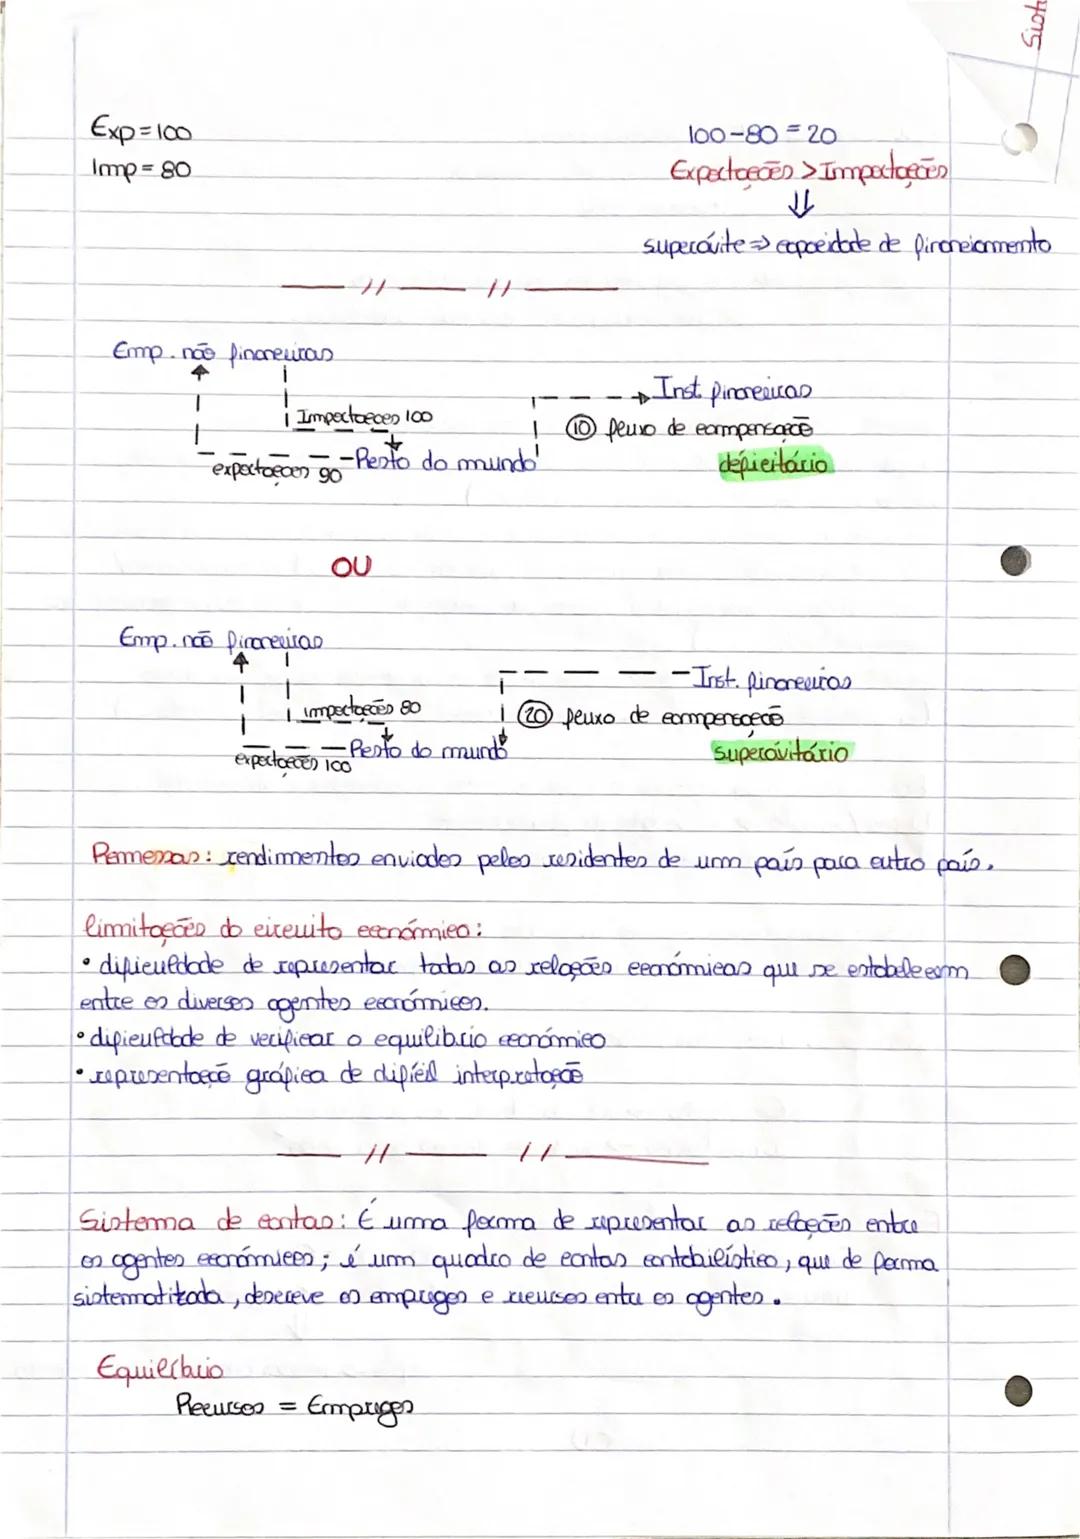 Siste
Exp = 100
100-80 = 20
Imp = 80
Exportações > Importações
⇓
superávite ⇒ capacidade de financiamento
— // — // —
Emp. não financeiras
Inst. financeiras
Importações 100
10 fluxo de compensação
Resto do mundo
exportações 90
deficitário
OU
Emp. não financeiras
Inst. financeiras
importações 80
20 fluxo de compensação
Resto do mundo
exportações 100
superávitário
Remessas: rendimentos enviados pelos residentes de um país para outro país.
limitações do circuito económico:
• dificuldade de representar todas as relações económicas que se estabelecem
entre os diversos agentes económicos.
• dificuldade de verificar o equilibrio económico
• representação gráfica de difícil interpretação
— // — // —
Sistema de contas: É uma forma de representar as relações entre
os agentes económicos; é um quadro de contas contabilístico, que de forma
sistematizada, descreve os empregos e recursos entre os agentes.
Equilíbrio
Recursos = Empregos